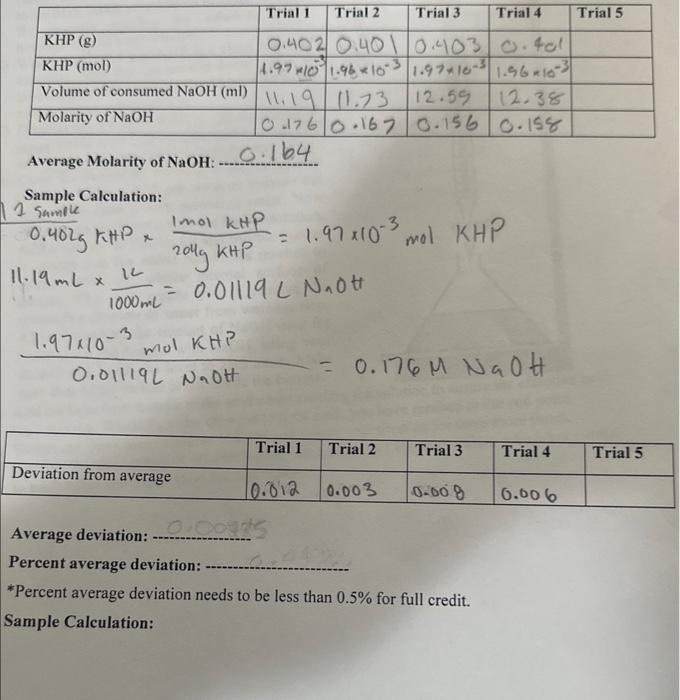 Trial 1 Trial 2 Trial 3 Trial 4 Trial 5
KHP (g) 0.402 0.401 0.403 0.401
KHP (mol) 1.97x10⁻³ 1.96x10⁻³ 1.97x10⁻³ 1.96x10⁻³
Volume of consumed NaOH (ml) 11.19 11.73 12.59 12.38
Molarity of NaOH 0.176 0.167 0.156 0.158
Average Molarity of NaOH: 0.164
Sample Calculation:
Sample
0.402g KHP x 1mol KHP / 204g KHP = 1.97x10⁻³ mol KHP
11.19mL x 1L / 1000mL = 0.01119 L NaOH
1.97x10⁻³ mol KHP / 0.01119L NaOH = 0.176 M NaOH
Trial 1 Trial 2 Trial 3 Trial 4 Trial 5
Deviation from average 0.012 0.003 0.008 0.006
Average deviation:
Percent average deviation:
*Percent average deviation needs to be less than 0.5% for full credit.
Sample Calculation: